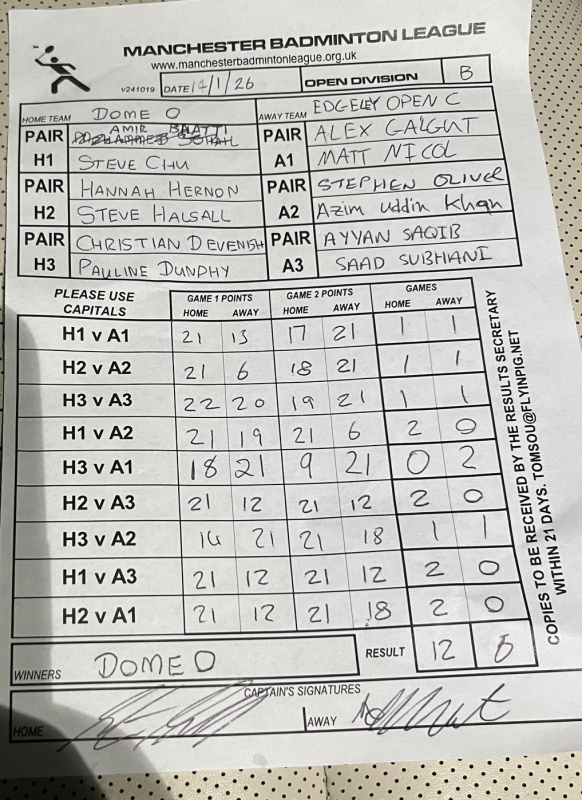 MANCHESTER BADMINTON LEAGUE
www.manchesterbadmintonleague.org.uk
v241019 DATE 14/1/26 OPEN DIVISION B
HOME TEAM DOME O AWAY TEAM EDGELEY OPEN C
PAIR H1 AMIR BHATTI
STEVE CHU
PAIR A1 ALEX GALGUT
MATT NICOL
PAIR H2 HANNAH HERNON
STEVE HALSALL
PAIR A2 STEPHEN OLIVER
Azim uddin Khan
PAIR H3 CHRISTIAN DEVENISH
PAULINE DUNPHY
PAIR A3 AYYAN SAQIB
SAAD SUBHANI
PLEASE USE CAPITALS GAME 1 POINTS GAME 2 POINTS GAMES
HOME AWAY HOME AWAY HOME AWAY
H1 v A1 21 13 17 21 1 1
H2 v A2 21 6 18 21 1 1
H3 v A3 22 20 19 21 1 1
H1 v A2 21 19 21 6 2 0
H3 v A1 18 21 9 21 0 2
H2 v A3 21 12 21 12 2 0
H3 v A2 21 21 18 1 1
H1 v A3 21 12 21 12 2 0
H2 v A1 21 12 21 18 2 0
WINNERS DOME O RESULT 12 6
CAPTAIN'S SIGNATURES
HOME AWAY
COPIES TO BE RECEIVED BY THE RESULTS SECRETARY
WITHIN 21 DAYS. TOMSOU@FLYINPIG.NET